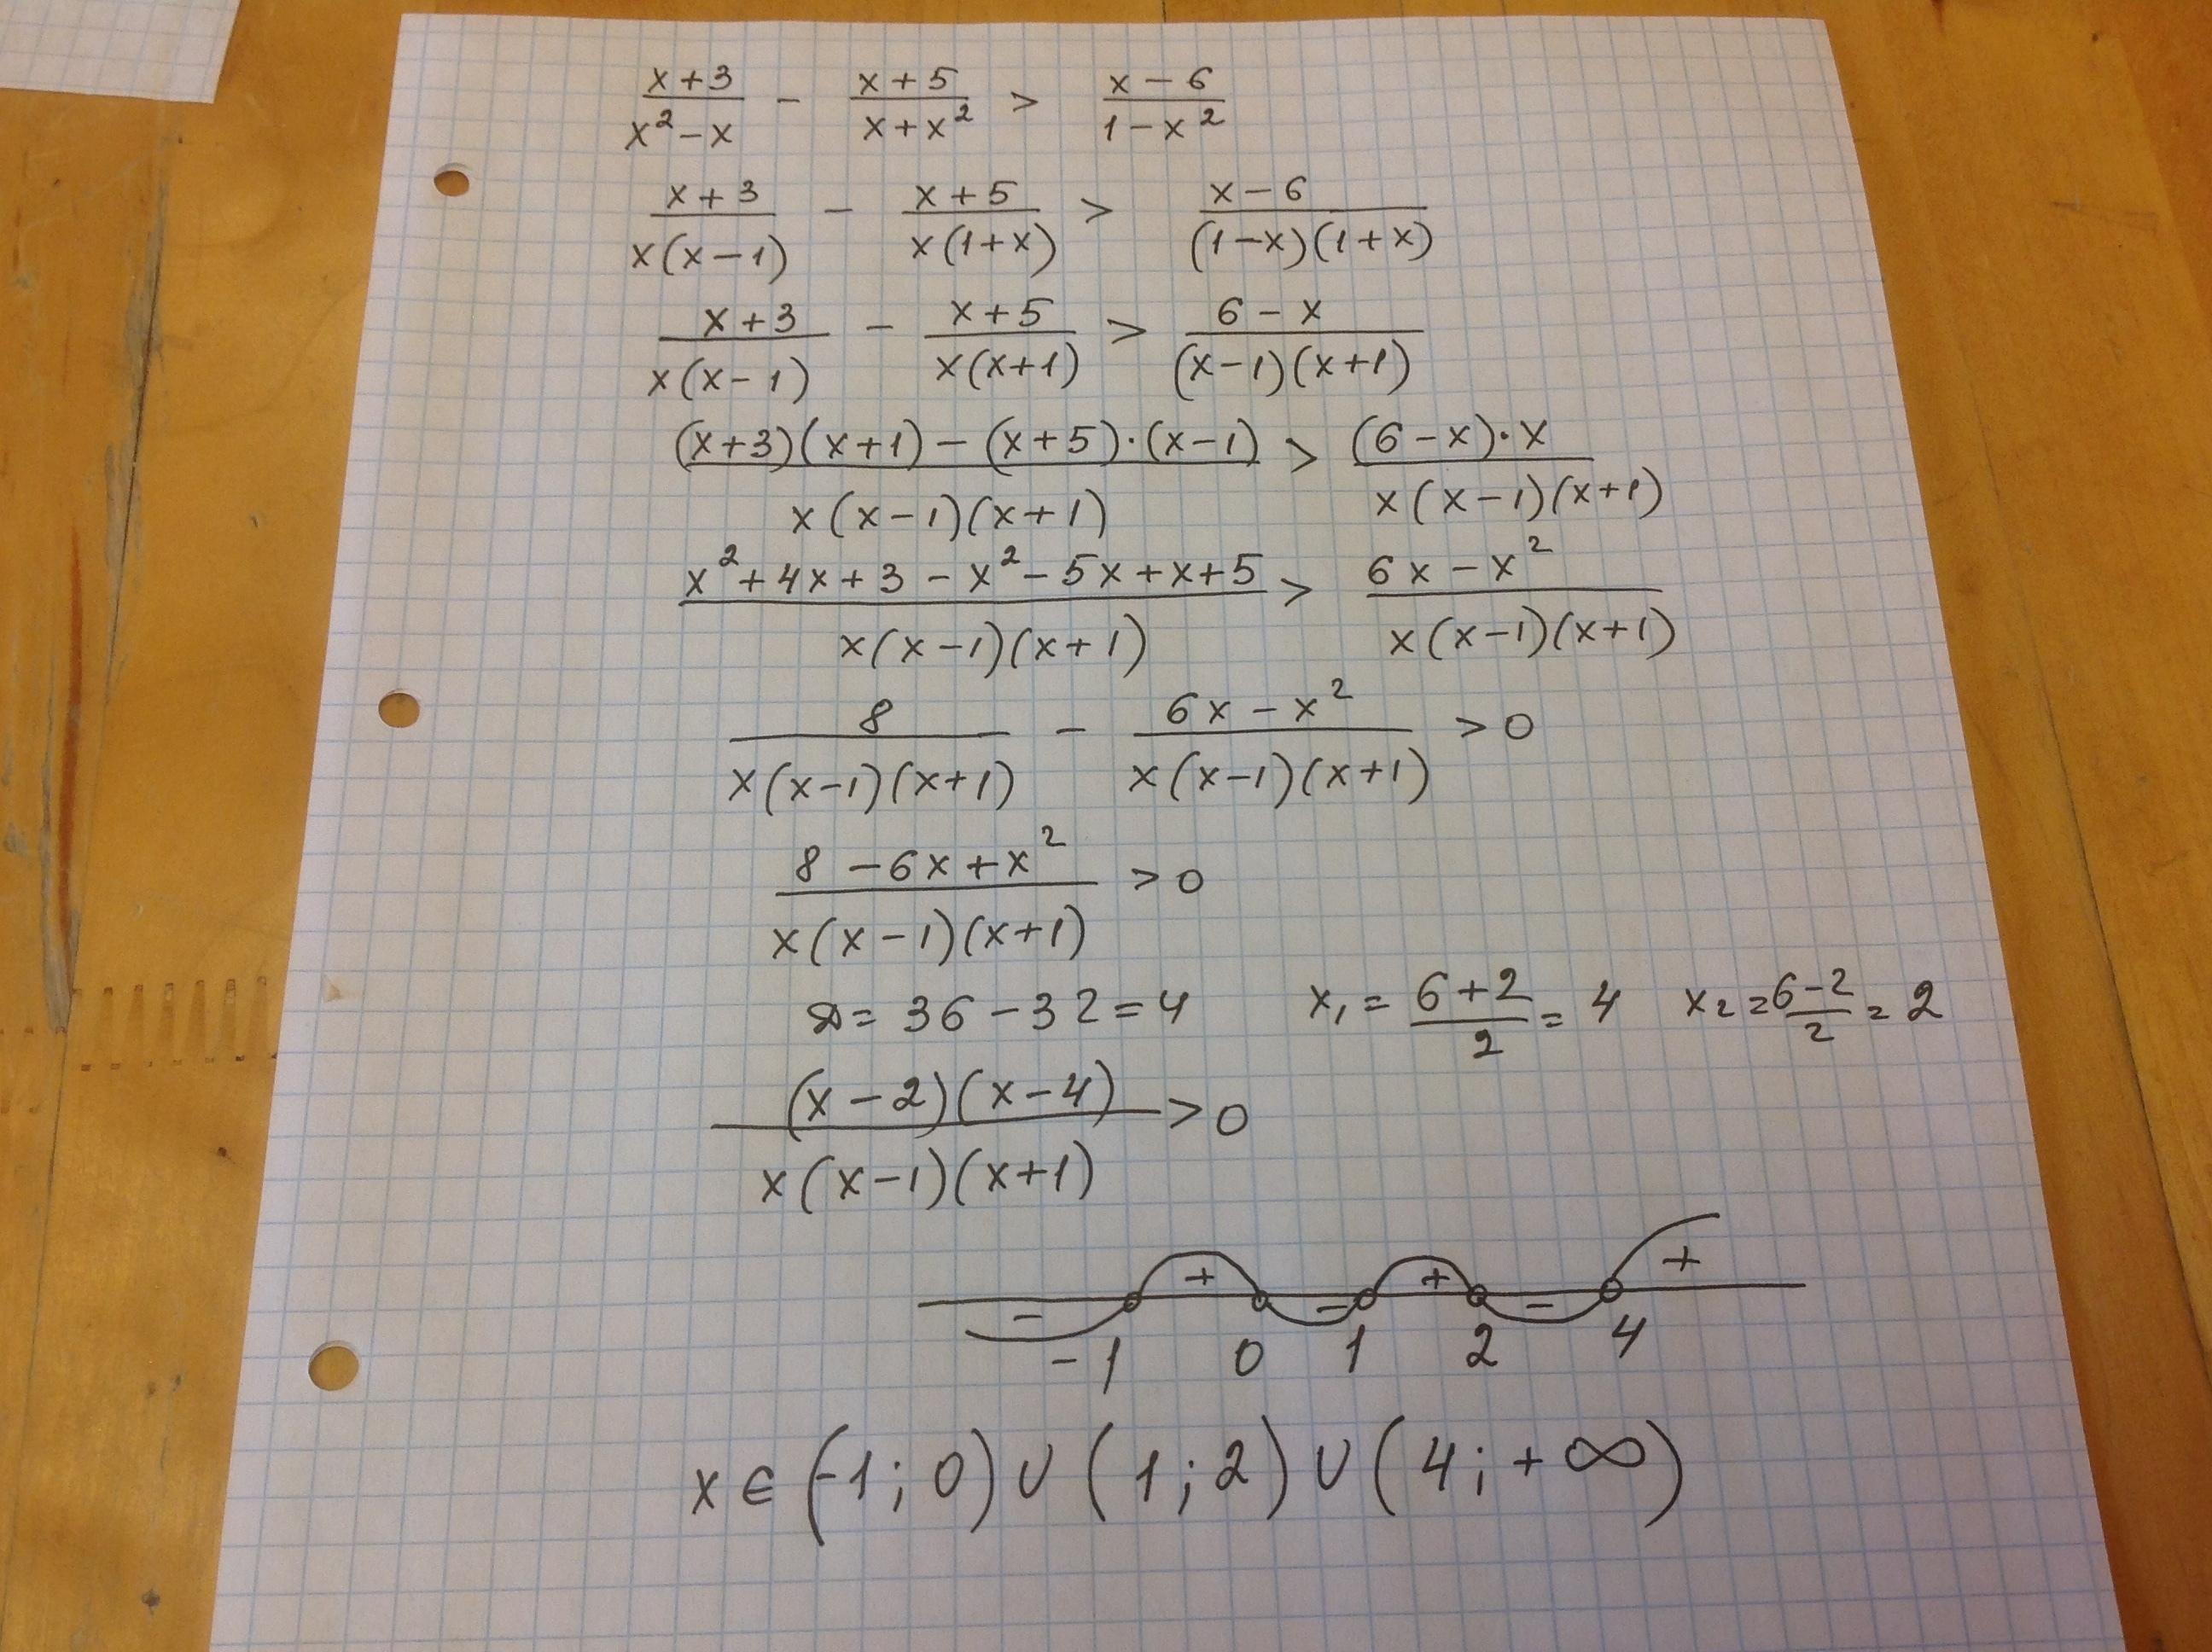 (x+3)/(x²-x) - (x+5)/(x+x²) > (x-6)/(1-x²)
(x+3)/(x(x-1)) - (x+5)/(x(1+x)) > (x-6)/((1-x)(1+x))
(x+3)/(x(x-1)) - (x+5)/(x(x+1)) > (6-x)/((x-1)(x+1))
((x+3)(x+1)-(x+5)·(x-1))/(x(x-1)(x+1)) > ((6-x)·x)/(x(x-1)(x+1))
(x²+4x+3-x²-5x+x+5)/(x(x-1)(x+1)) > (6x-x²)/(x(x-1)(x+1))
8/(x(x-1)(x+1)) - (6x-x²)/(x(x-1)(x+1)) > 0
(8-6x+x²)/(x(x-1)(x+1)) > 0
D = 36-32 = 4 x₁ = (6+2)/2 = 4 x₂ = (6-2)/2 = 2
((x-2)(x-4))/(x(x-1)(x+1)) > 0
- + - + - +
-1 0 1 2 4
x ∈ (-1; 0) ∪ (1; 2) ∪ (4; +∞)